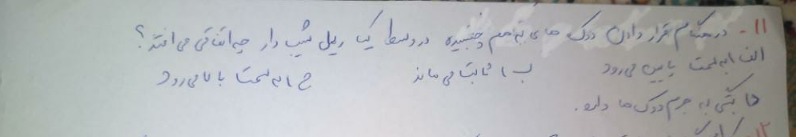 ۱۱- در هنگام قرار دادن دوک های به هم چسبیده در وسط یک ریل شیب دار چه اتفاقی می افتد؟
الف) به سمت پایین می رود ب) ثابت می ماند ج) به سمت بالا می رود
د) بستگی به جرم دوک ها دارد.